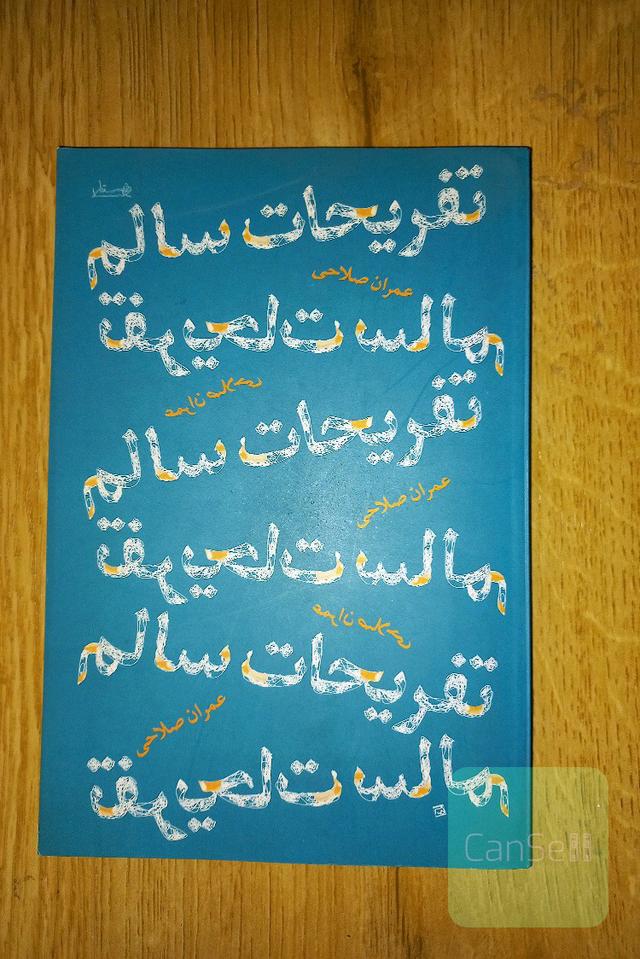 تفریحات سالم
عمران صلاحی
تفریحات سالم
عمران صلاحی
تفریحات سالم
عمران صلاحی
تفریحات سالم
عمران صلاحی
تفریحات سالم
عمران صلاحی
تفریحات سالم
CanSell